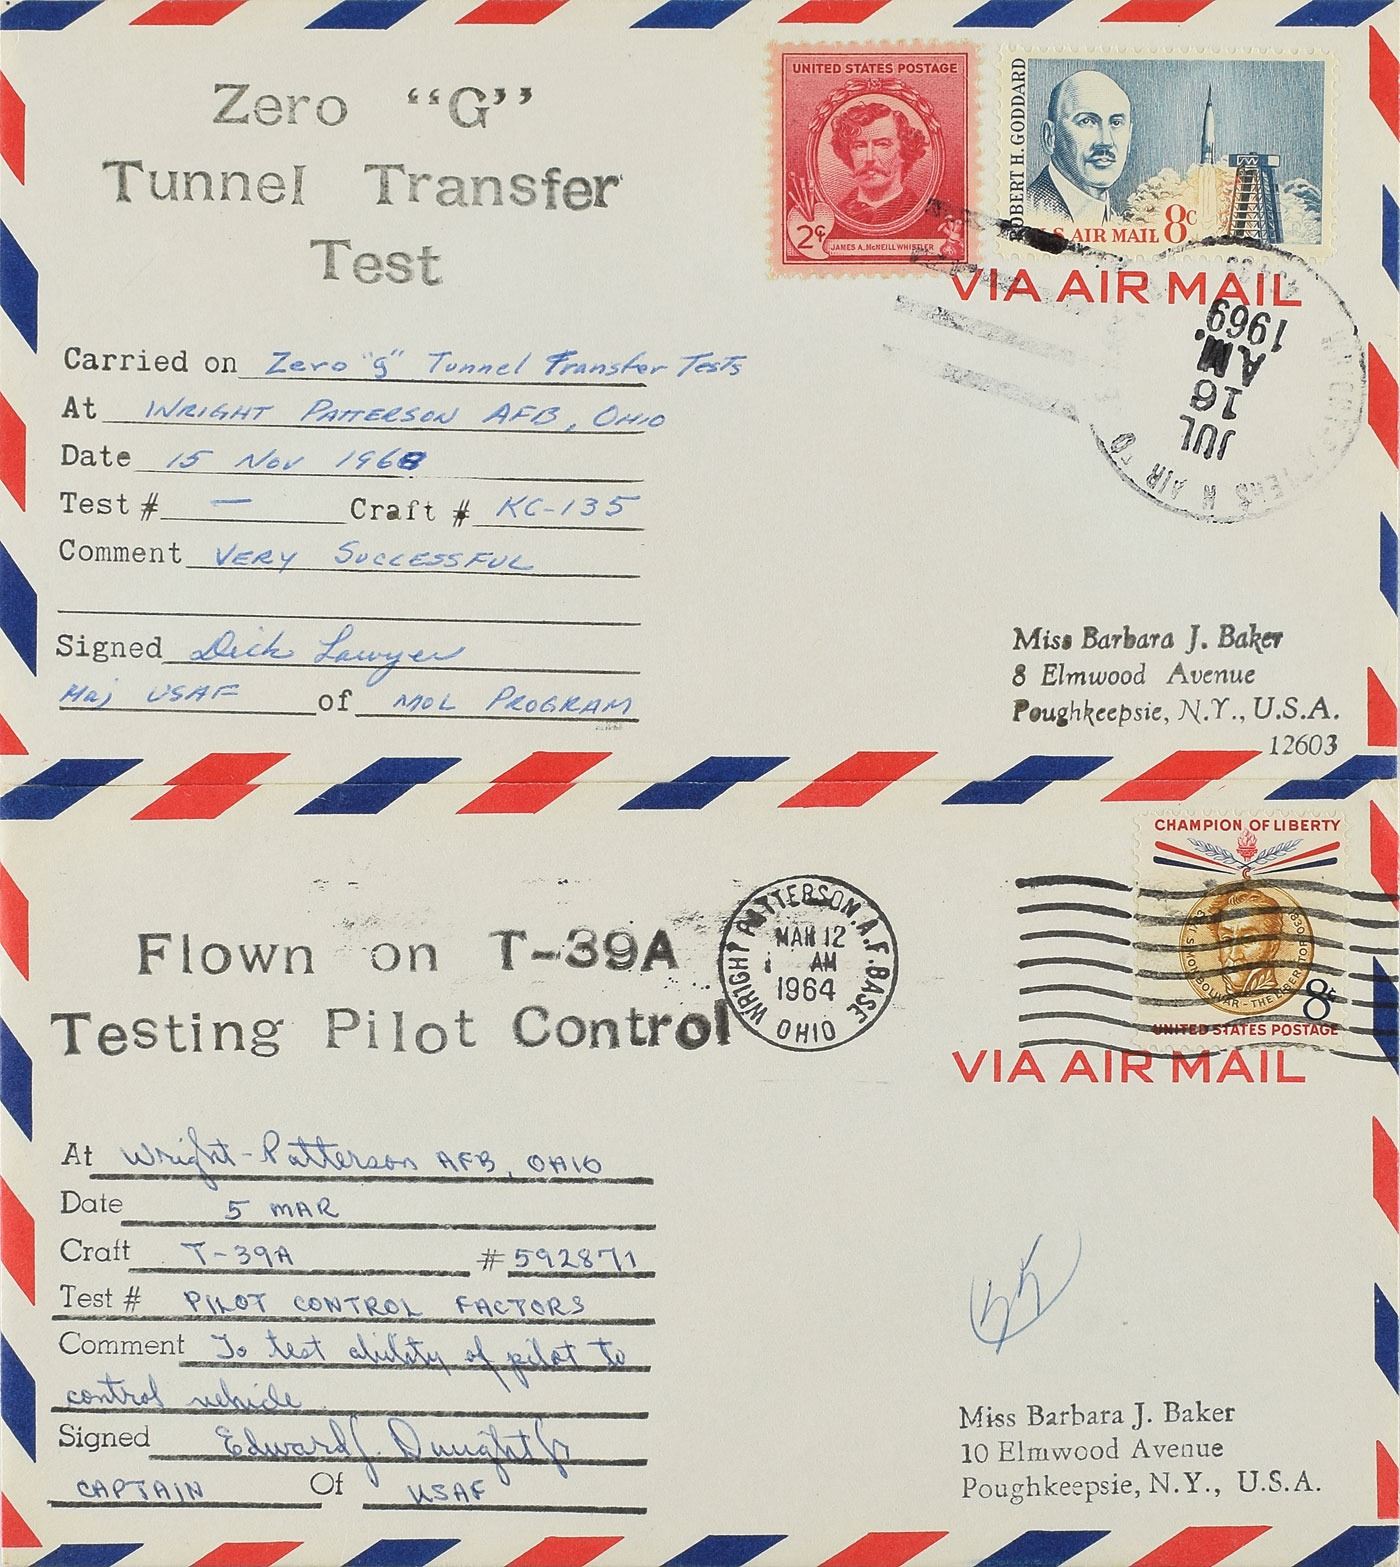 Zero “G”
Tunnel Transfer
Test
UNITED STATES POSTAGE
2¢
JAMES A. McNEILL WHISTLER
ROBERT H. GODDARD
U.S. AIR MAIL 8c
VIA AIR MAIL
JUL
16
A.M.
1969
Carried on Zero "g" Tunnel Transfer Tests
At WRIGHT PATTERSON AFB, OHIO
Date 15 Nov 1968
Test # — Craft # KC-135
Comment VERY SUCCESSFUL
Signed Dick Lawyer
Maj USAF of MOL PROGRAM
Miss Barbara J. Baker
8 Elmwood Avenue
Poughkeepsie, N.Y., U.S.A.
12603
Flown on T-39A
Testing Pilot Control
WRIGHT PATTERSON A.F. BASE
MAR 12
AM
1964
OHIO
CHAMPION OF LIBERTY
SIMON BOLIVAR - THE LIBERATOR
8¢
UNITED STATES POSTAGE
VIA AIR MAIL
At Wright-Patterson AFB, OHIO
Date 5 MAR
Craft T-39A # 592871
Test # PILOT CONTROL FACTORS
Comment To test ability of pilot to
control vehicle
Signed Edward J. Dwight Jr
CAPTAIN Of USAF
Miss Barbara J. Baker
10 Elmwood Avenue
Poughkeepsie, N.Y., U.S.A.